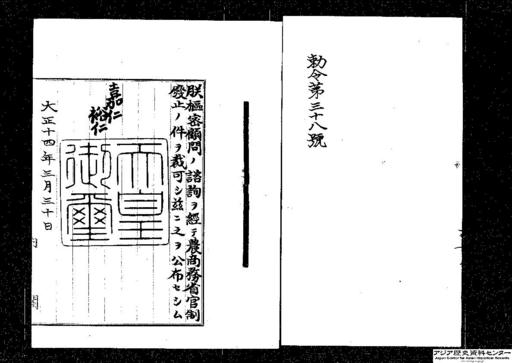 勅令第三十八號
朕樞密顧問ノ諮詢ヲ經テ農商務省官制
廢止ノ件ヲ裁可シ茲ニ之ヲ公布セシム
嘉仁
裕仁
天皇
御璽
大正十四年三月三十日
内閣
アジア歴史資料センター
Japan Center for Asian Historical Records